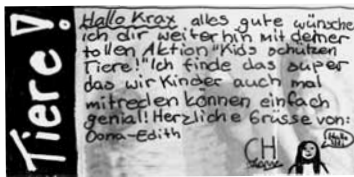 Tiere!
Hallo Krax alles gute wünsche
ich dir weiterhin mit deiner
tollen Aktion "Kids schützen
Tiere!" Ich finde das super
das wir Kinder auch mal
mitreden können einfach
genial! Herzliche Grüsse von:
Oona-Edith
CH